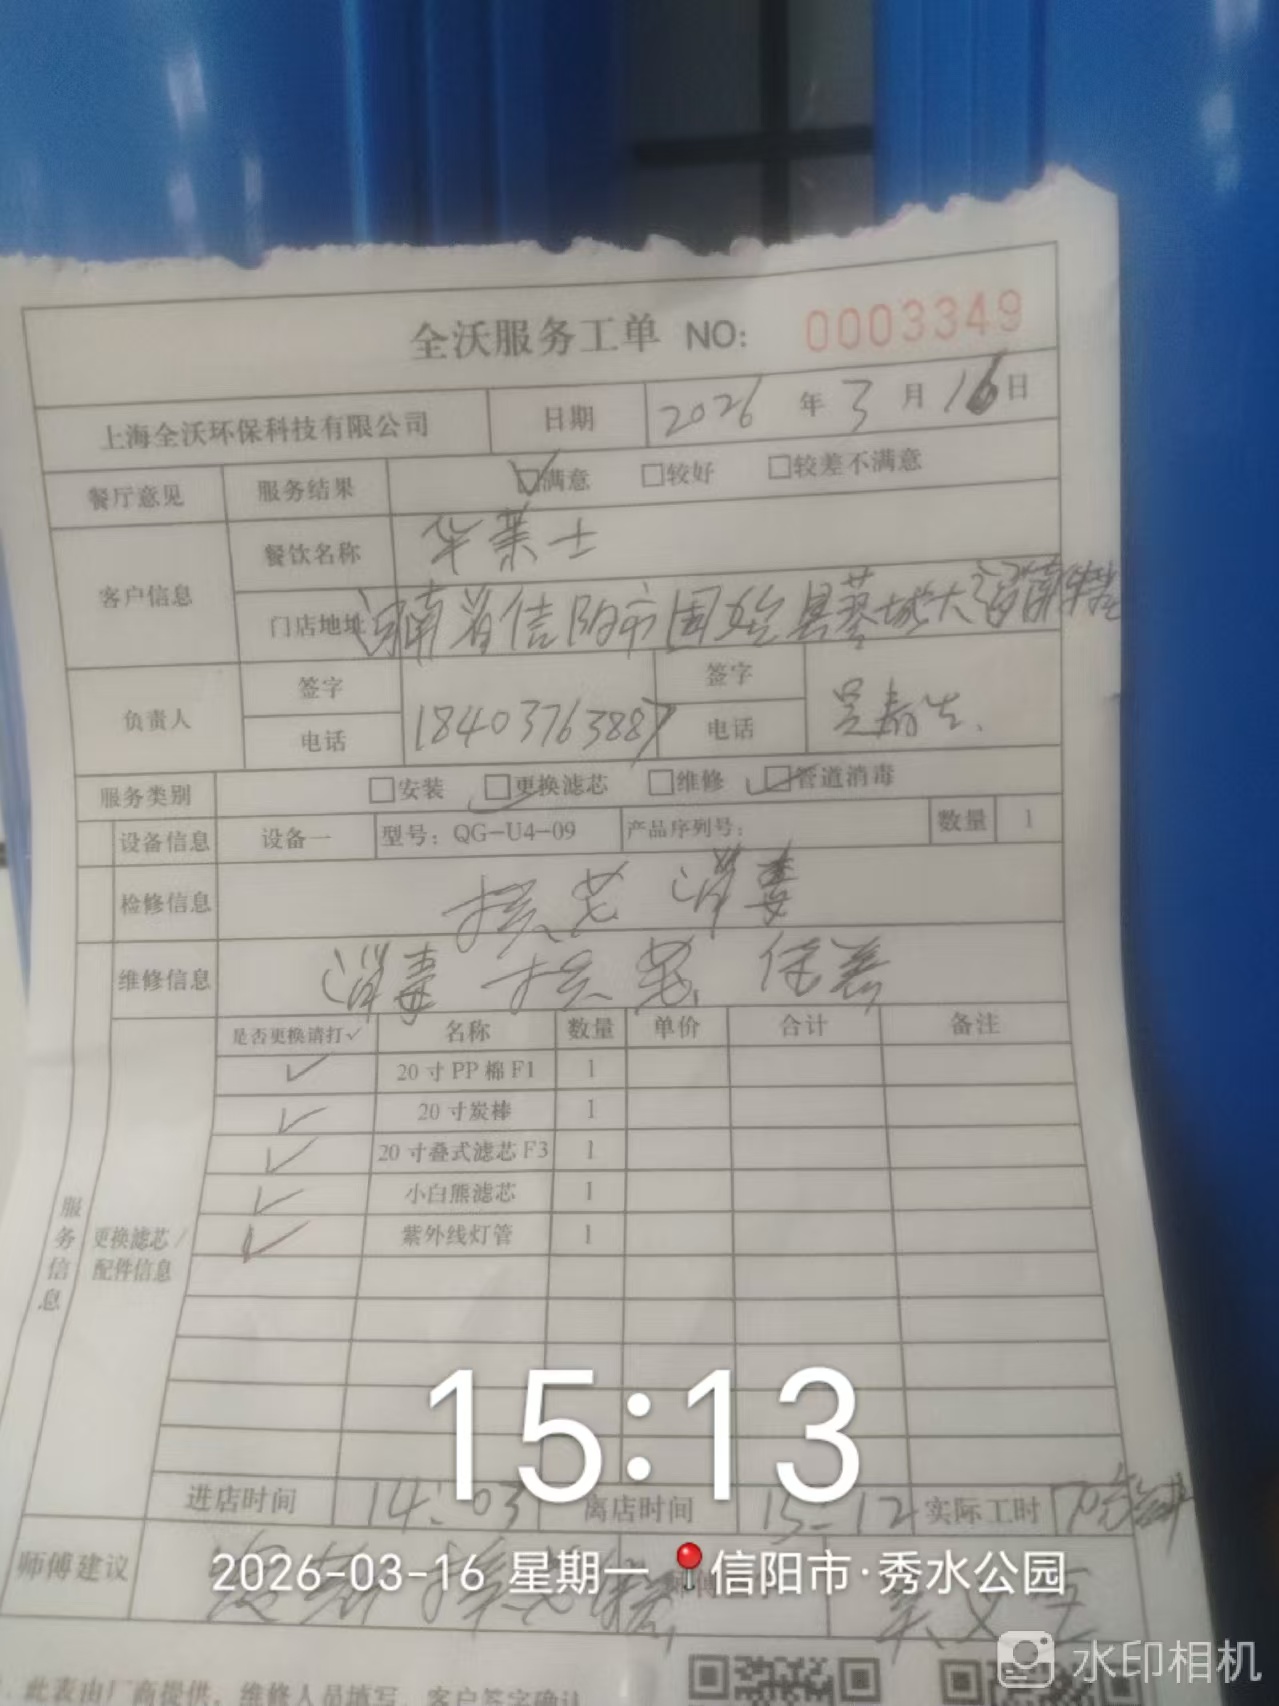 全沃服务工单 NO: 0003349
上海全沃环保科技有限公司 日期 2026 年 3 月 16 日
餐厅意见 服务结果 ☑满意 □较好 □较差不满意
客户信息 餐饮名称 华莱士
门店地址 河南省信阳市固始县蓼城大道
负责人 签字 电话 18403763887 签字 电话
服务类别 □安装 ☑更换滤芯 □维修 ☑管道消毒
设备信息 设备一 型号：QG-U4-09 产品序列号： 数量 1
检修信息 换芯 消毒
维修信息 消毒 换芯 保养
服务信息 更换滤芯/配件信息
是否更换请打✓ 名称 数量 单价 合计 备注
✓ 20寸PP棉F1 1
✓ 20寸炭棒 1
✓ 20寸叠式滤芯F3 1
✓ 小白熊滤芯 1
✓ 紫外线灯管 1
15:13
进店时间 14:03 离店时间 15-12 实际工时 70分钟
师傅建议
2026-03-16 星期一 信阳市·秀水公园
此表由厂商提供，维修人员填写，客户签字确认
水印相机